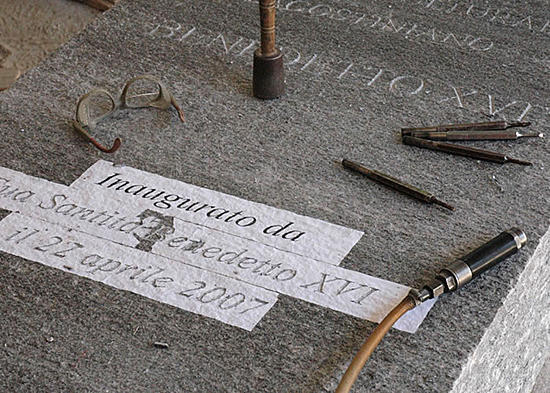 AGOSTINIANO
BENEDETTO XVI
Inaugurato da
Sua Santità Benedetto XVI
il 22 aprile 2007